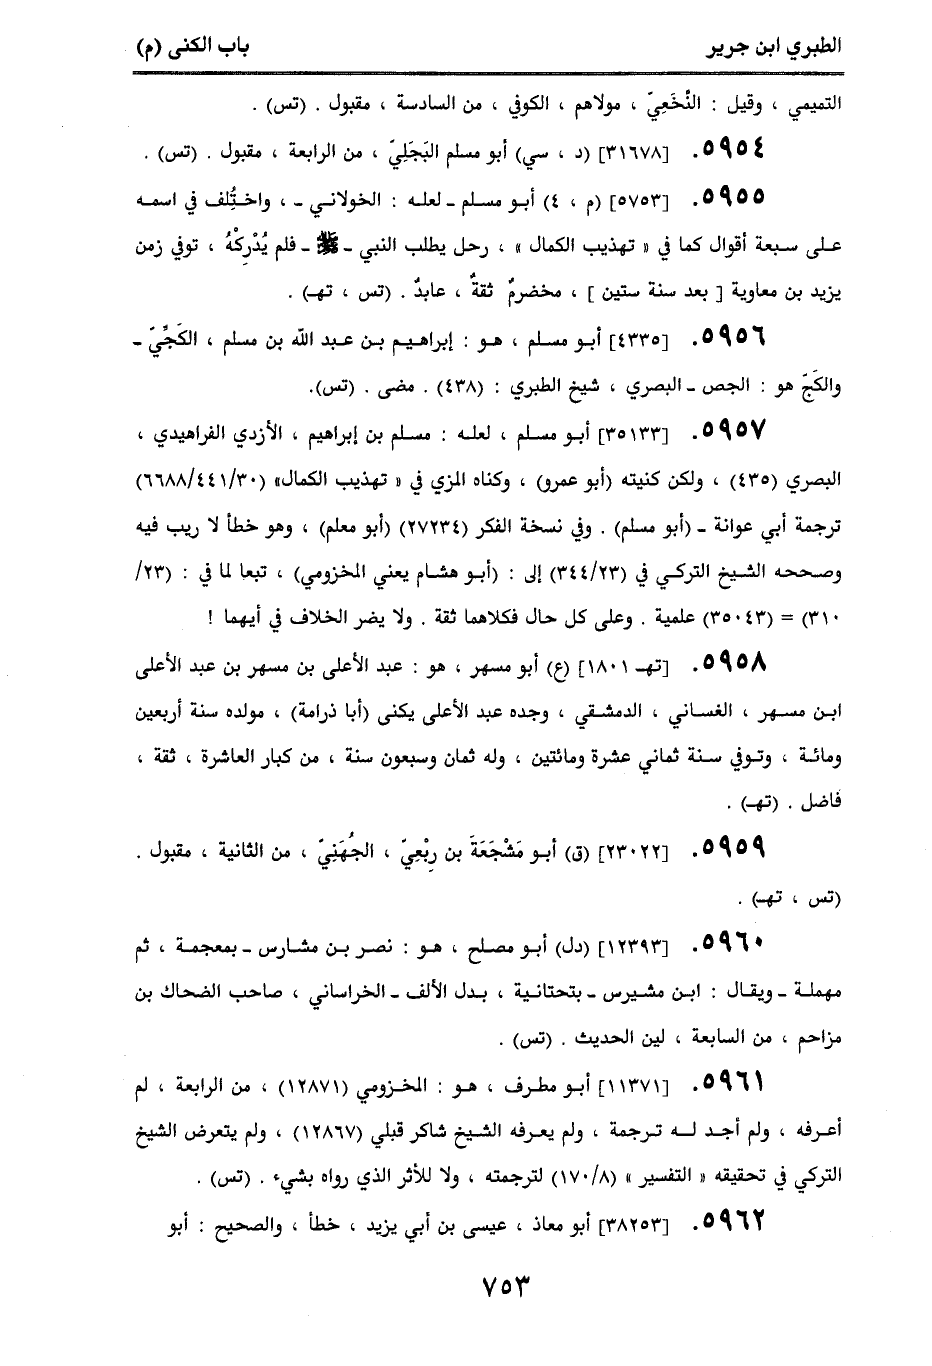 الطبري ابن جرير
باب الكنى (م)
التميمي ، وقيل : النَّخَعِيّ ، مولاهم ، الكوفي ، من السادسة ، مقبول . (تس) .
٥٩٥٤. [٣١٦٧٨] (د ، سي) أبو مسلم البَجَلِيّ ، من الرابعة ، مقبول . (تس) .
٥٩٥٥. [٥٧٥٣] (م ، ٤) أبو مسلم ـ لعله : الخولاني ـ ، واختُلِف في اسمه
على سبعة أقوال كما في « تهذيب الكمال » ، رحل يطلب النبي ـ ﷺ ـ فلم يُدْرِكْهُ ، توفي زمن
يزيد بن معاوية [ بعد سنة ستين ] ، مخضرمٌ ثقةٌ ، عابدٌ . (تس ، تهـ) .
٥٩٥٦. [٤٣٣٥] أبو مسلم ، هو : إبراهيم بن عبد الله بن مسلم ، الكَجِّيّ ـ
والكَجّ هو : الجص ـ البصري ، شيخ الطبري : (٤٣٨) . مضى . (تس).
٥٩٥٧. [٣٥١٣٣] أبو مسلم ، لعله : مسلم بن إبراهيم ، الأزدي الفراهيدي ،
البصري (٤٣٥) ، ولكن كنيته (أبو عمرو) ، وكناه المزي في « تهذيب الكمال» (٦٦٨٨/٤٤١/٣٠)
ترجمة أبي عوانة ـ (أبو مسلم) . وفي نسخة الفكر (٢٧٢٣٤) (أبو معلم) ، وهو خطأ لا ريب فيه
وصححه الشيخ التركي في (٣٤٤/٢٣) إلى : (أبو هشام يعني المخزومي) ، تبعا لما في : (٢٣/
٣١٠) = (٣٥٠٤٣) علمية . وعلى كل حال فكلاهما ثقة . ولا يضر الخلاف في أيهما !
٥٩٥٨. [تهـ ١٨٠١] (ع) أبو مسهر ، هو : عبد الأعلى بن مسهر بن عبد الأعلى
ابن مسهر ، الغساني ، الدمشقي ، وجده عبد الأعلى يكنى (أبا ذرامة) ، مولده سنة أربعين
ومائة ، وتوفي سنة ثماني عشرة ومائتين ، وله ثمان وسبعون سنة ، من كبار العاشرة ، ثقة ،
فاضل . (تهـ) .
٥٩٥٩. [٢٣٠٢٢] (ق) أبو مَشْجَعَةَ بن رِبْعِيّ ، الجُهَنِيّ ، من الثانية ، مقبول .
(تس ، تهـ) .
٥٩٦٠. [١٢٣٩٣] (دل) أبو مصلح ، هو : نصر بن مشارس ـ بمعجمة ، ثم
مهملة ـ ويقال : ابن مشيرس ـ بتحتانية ، بدل الألف ـ الخراساني ، صاحب الضحاك بن
مزاحم ، من السابعة ، لين الحديث . (تس) .
٥٩٦١. [١١٣٧١] أبو مطرف ، هو : المخزومي (١٢٨٧١) ، من الرابعة ، لم
أعرفه ، ولم أجد له ترجمة ، ولم يعرفه الشيخ شاكر قبلي (١٢٨٦٧) ، ولم يتعرض الشيخ
التركي في تحقيقه « التفسير » (١٧٠/٨) لترجمته ، ولا للأثر الذي رواه بشيء . (تس) .
٥٩٦٢. [٣٨٢٥٣] أبو معاذ ، عيسى بن أبي يزيد ، خطأ ، والصحيح : أبو
٧٥٣